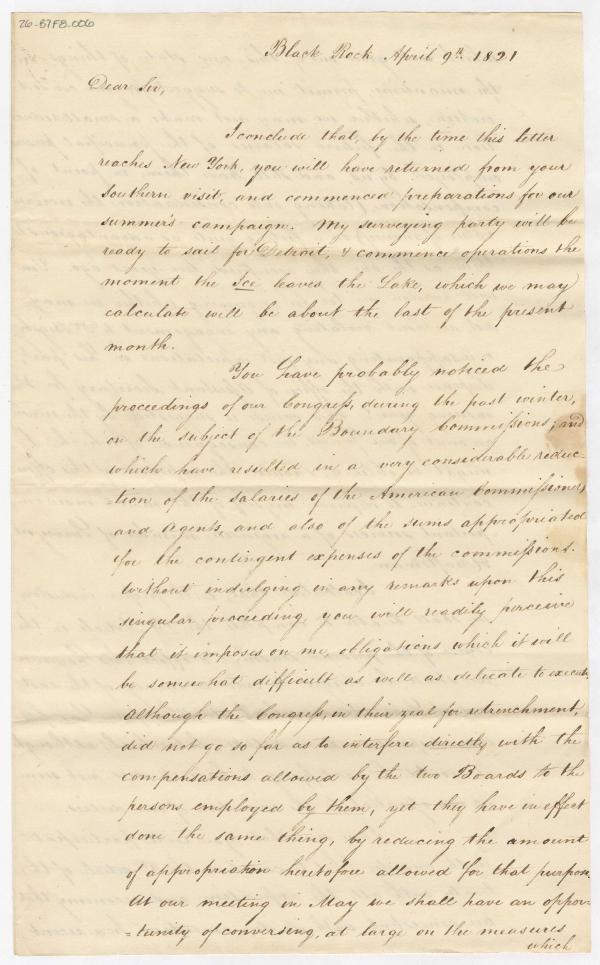 26-57FB.006
Black Rock April 9th 1821
Dear Sir,
I conclude that, by the time this letter
reaches New York, you will have returned from your
Southern visit, and commenced preparations for our
summer's campaign. My surveying party will be
ready to sail for Detroit, & commence operations the
moment the Ice leaves the Lake, which we may
calculate will be about the last of the present
month.
You have probably noticed the
proceedings of our Congress, during the past winter,
on the subject of the Boundary Commissions; and
which have resulted in a very considerable reduc-
=tion of the salaries of the American Commissioners
and Agents, and also of the sums appropriated
for the contingent expenses of the commissions.
Without indulging in any remarks upon this
singular proceeding, you will readily perceive
that it imposes on me, obligations which it will
be somewhat difficult as well as delicate to execute.
Although the Congress, in their zeal for retrenchment,
did not go so far as to interfere directly with the
compensations allowed by the two Boards to the
persons employed by them, yet they have in effect
done the same thing, by reducing the amount
of appropriation heretofore allowed for that purpose.
At our meeting in May we shall have an oppor-
=tunity of conversing, at large on the measures
which